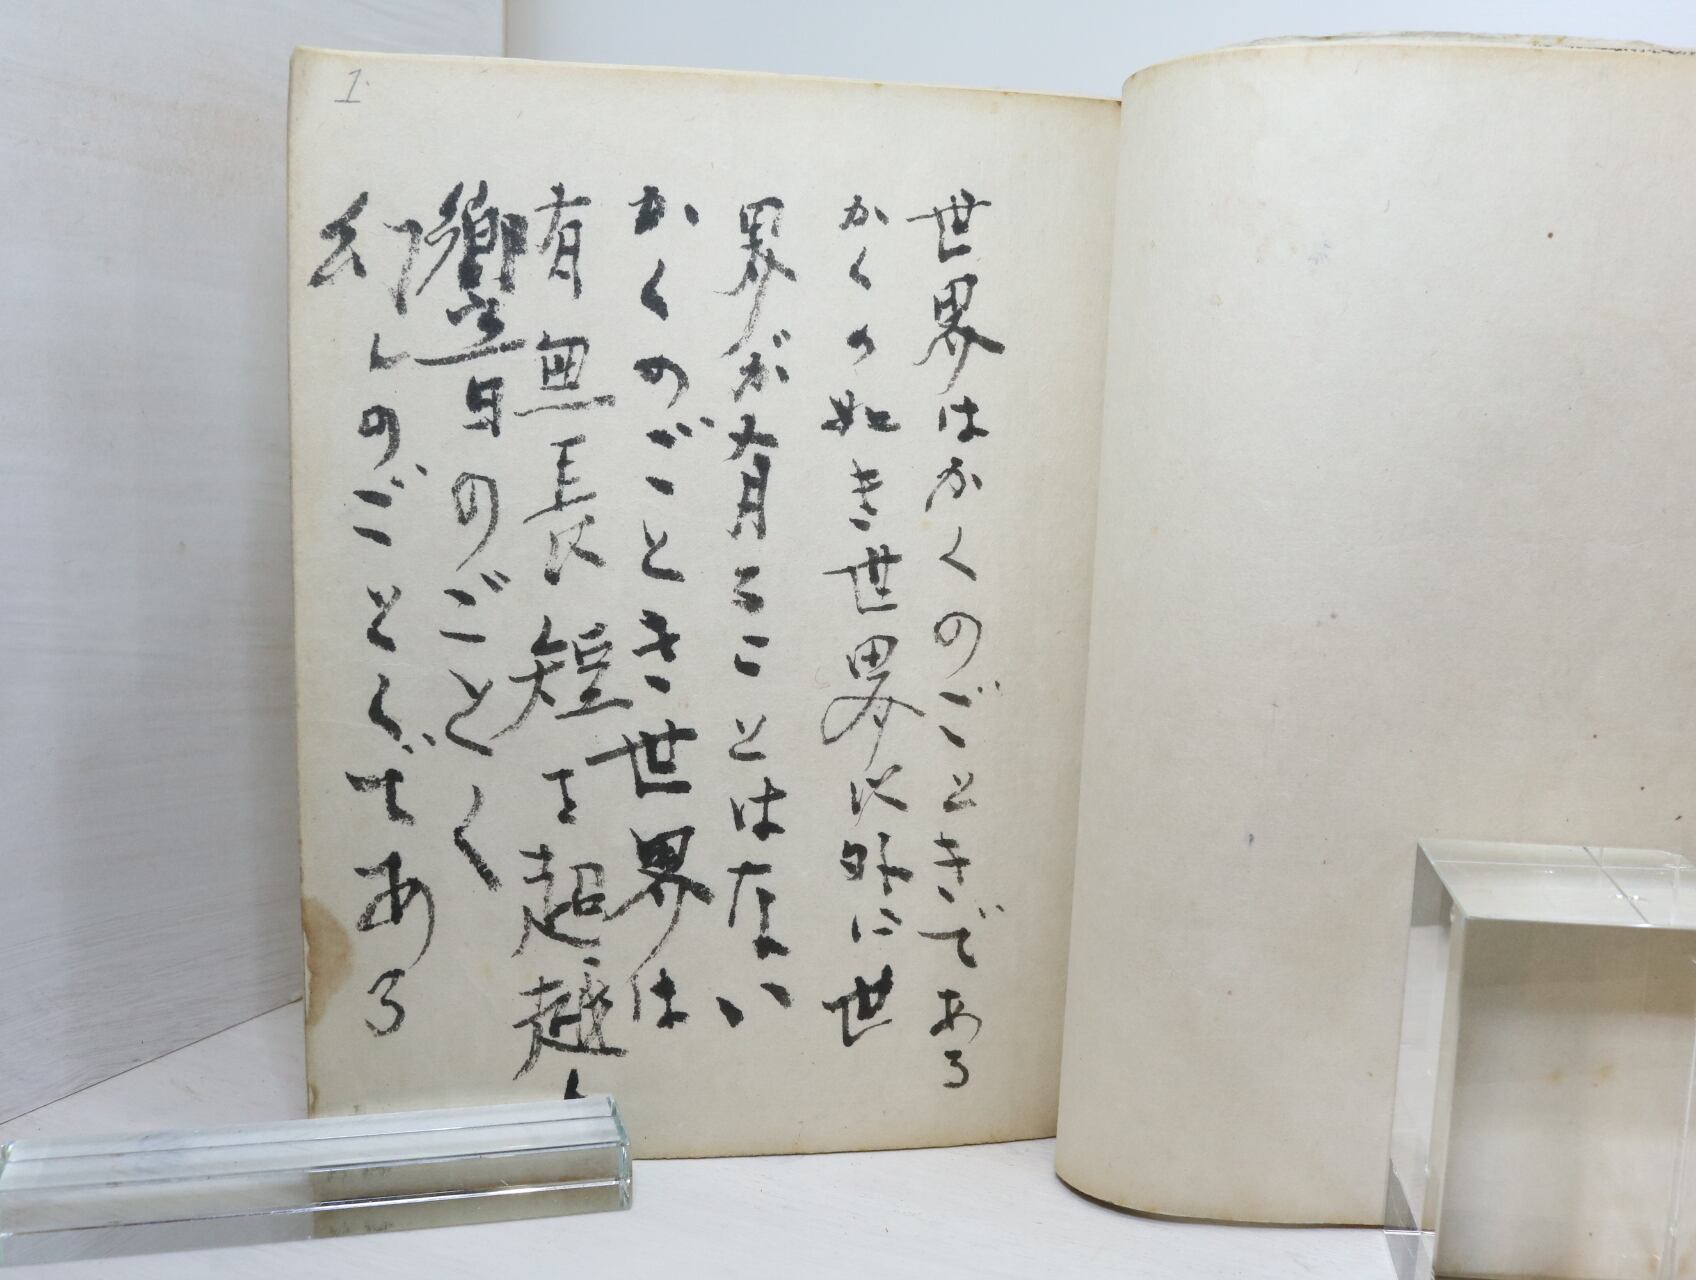 1.
世界はかくのごときである
かくの如き世界以外に世
界が有ることはない
かくのごとき世界は
有無長短を超越し
響のごとく
幻しのごとくである